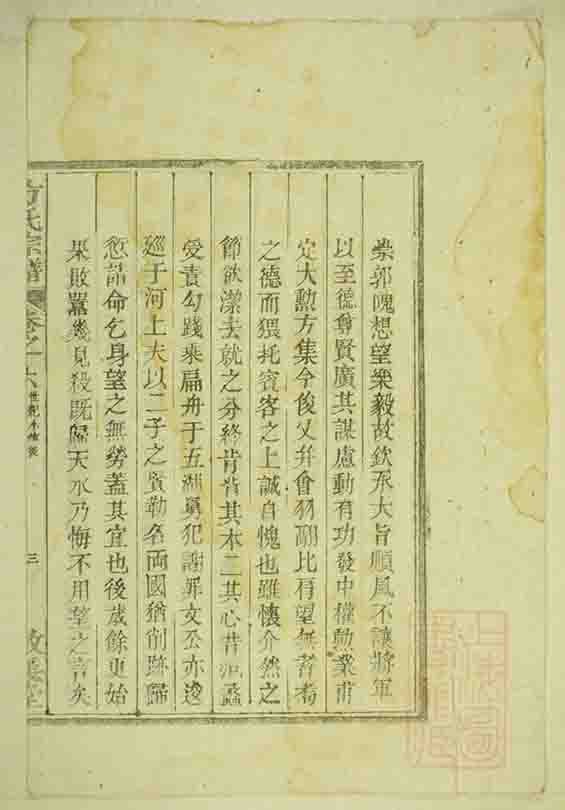 崇郭隗想望樂毅故欽承大旨順風不讓將軍
以至德尊賢廣其謀慮動有功發中權勳業甫
定大勲方集今俊乂并會羽翮比肩望無耆耇
之德而猥托賓客之上誠自愧也雖懷介然之
節欲潔去就之分終肯背其本二其心昔范蠡
受責勾踐乘扁舟于五湖舅犯謝罪文公亦逡
廵于河上夫以二子之賢勒名兩國猶削跡歸
愆請命乞身望之無勞蓋其宜也後歲餘更始
果敗囂幾見殺既歸天水乃悔不用望之言矣
方氏宗譜 卷之十六 世紀 三